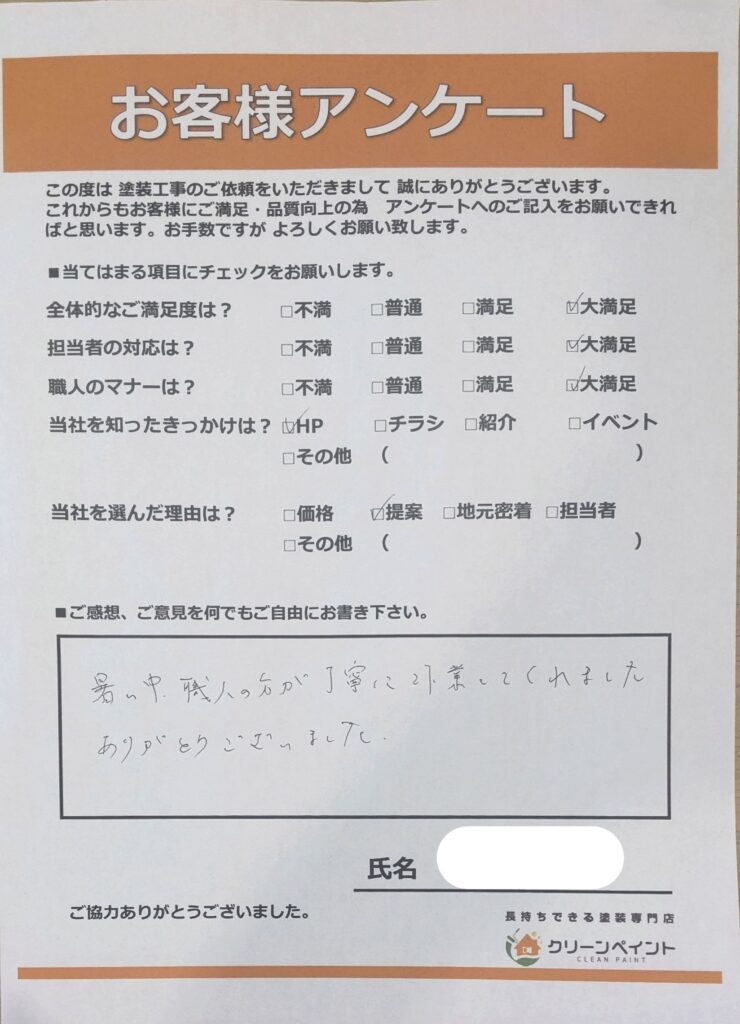 お客様アンケート
この度は 塗装工事のご依頼をいただきまして 誠にありがとうございます。
これからもお客様にご満足・品質向上の為　アンケートへのご記入をお願いできれ
ばと思います。お手数ですが よろしくお願い致します。
■当てはまる項目にチェックをお願いします。
全体的なご満足度は？ □不満 □普通 □満足 ☑大満足
担当者の対応は？ □不満 □普通 □満足 ☑大満足
職人のマナーは？ □不満 □普通 □満足 ☑大満足
当社を知ったきっかけは？ ☑HP □チラシ □紹介 □イベント
□その他 （ ）
当社を選んだ理由は？ □価格 ☑提案 □地元密着 □担当者
□その他 （ ）
■ご感想、ご意見を何でもご自由にお書き下さい。
暑い中、職人の方が丁寧に作業してくれました
ありがとうございました。
氏名
ご協力ありがとうございました。
長持ちできる塗装専門店
クリーンペイント
CLEAN PAINT